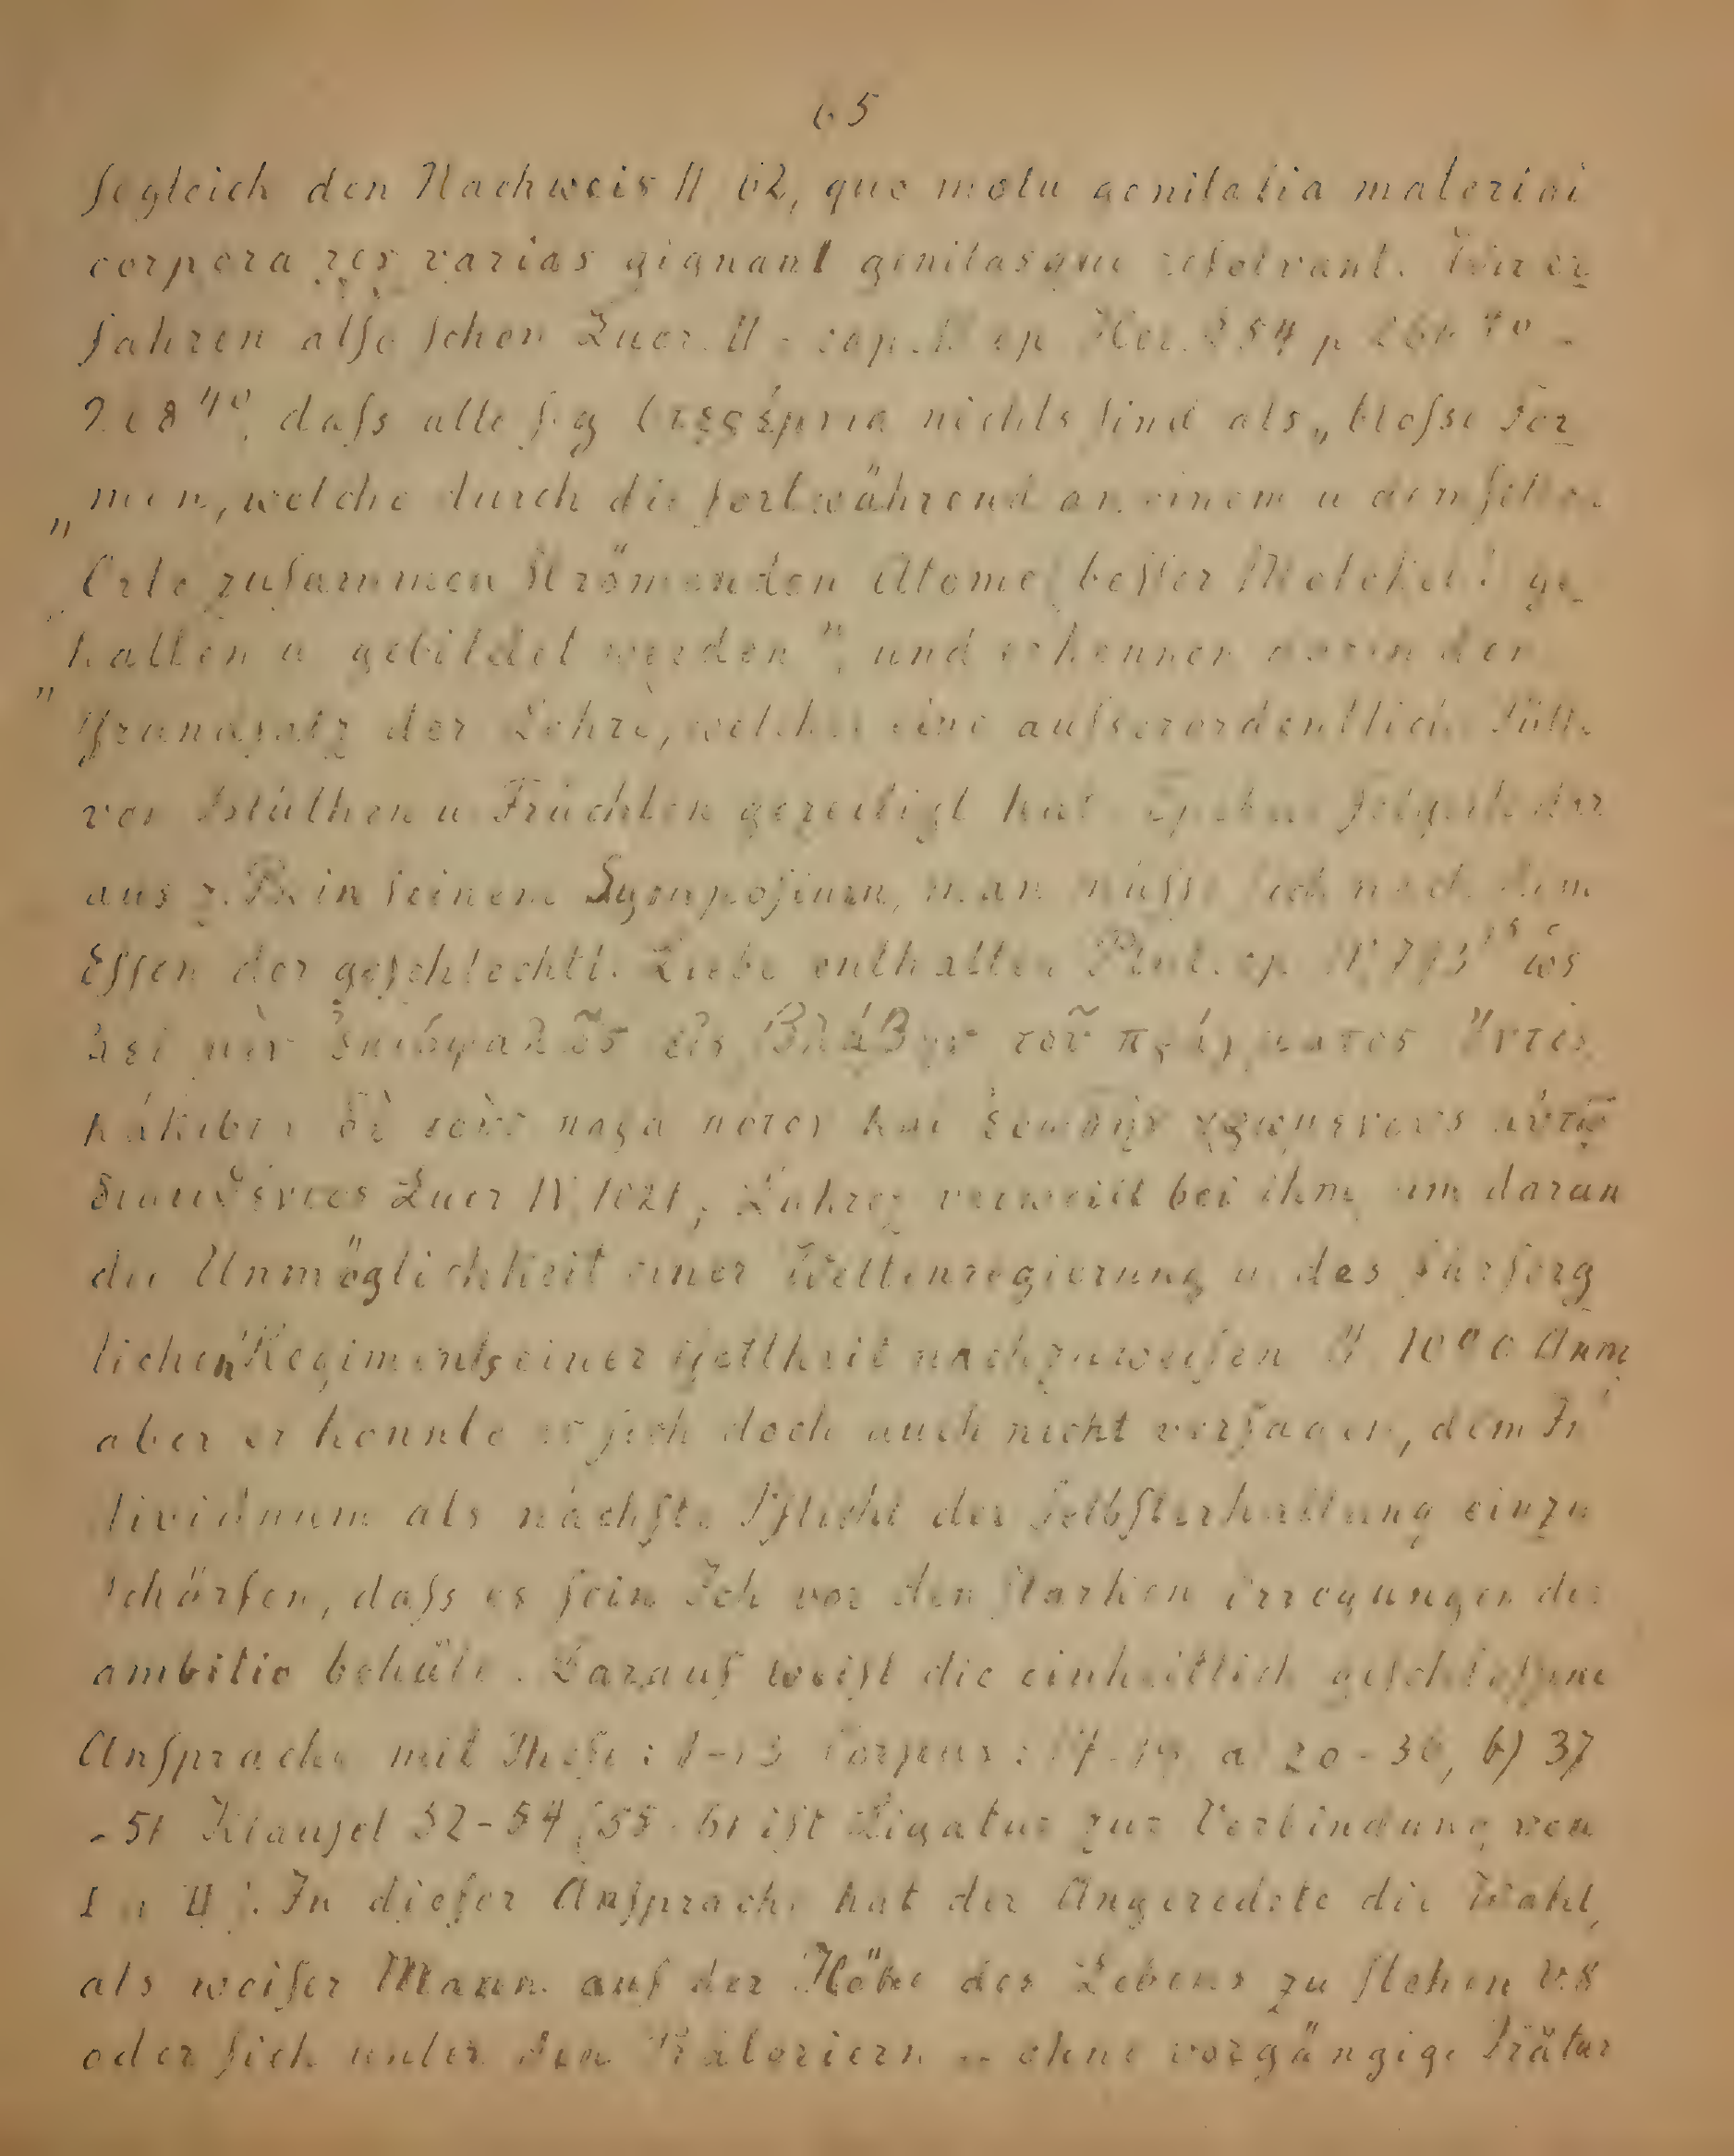 65
ſogleich den Nachweis II 62, quo motu genitalia materiai
corpora res varias gignant genitasque reſolvant. Wir er
fahren alſo ſchon Lucr. II ep Her. § 54 p
daſs alle nichts ſind als „bloſse For
„men, welche durch die fortwährend an einem u demſelben
Orte zuſammen ſtrömenden Atome beſſer Molekel ge-
halten u gebildet werden", und erkennen darin den
„Grundſatz der Lehre, welcher eine auſserordentliche Fülle
von Blüthen u Früchten gezeitigt hat. Epikur folgerte dar
aus z. B. in ſeinem Sympoſium, man müſſe ſich nach dem
Eſſen der geſchlechtl. Liebe enthalten Plut. ὡς
ἀεὶ μὲν ἐπισφαλοῦς εἰς βλάβην τοῦ πράγματος ὄντος
κάκιστα δὲ τοὺς
Lucr IV 1021; Lukrez verweilt bei ihm, um daran
die Unmöglichkeit einer Weltenregierung u des fürſorg
lichen Regiments einer Gottheit nachzuweiſen II Anm
aber er konnte es ſich doch auch nicht verſagen, dem In
dividuum als nächſte Pflicht der Selbſterhaltung einzu
ſchärfen, daſs es ſein Ich vor den ſtarken Erregungen der
ambitio behüte. Darauf weiſt die einheitlich geſchloſſene
Anſprache mit Theſe: 1-13 Corpus: a) 20-36, b) 37
-51 Klauſel 52-54 (55-61 iſt Ligatur zur Verbindung von
I u II). In dieſer Anſprache hat der Angeredete die Wahl,
als weiſer Mann auf der Höhe des Lebens zu ſtehen V. 8
oder ſich unter den Prätoriern – ohne vorgängige Prätur